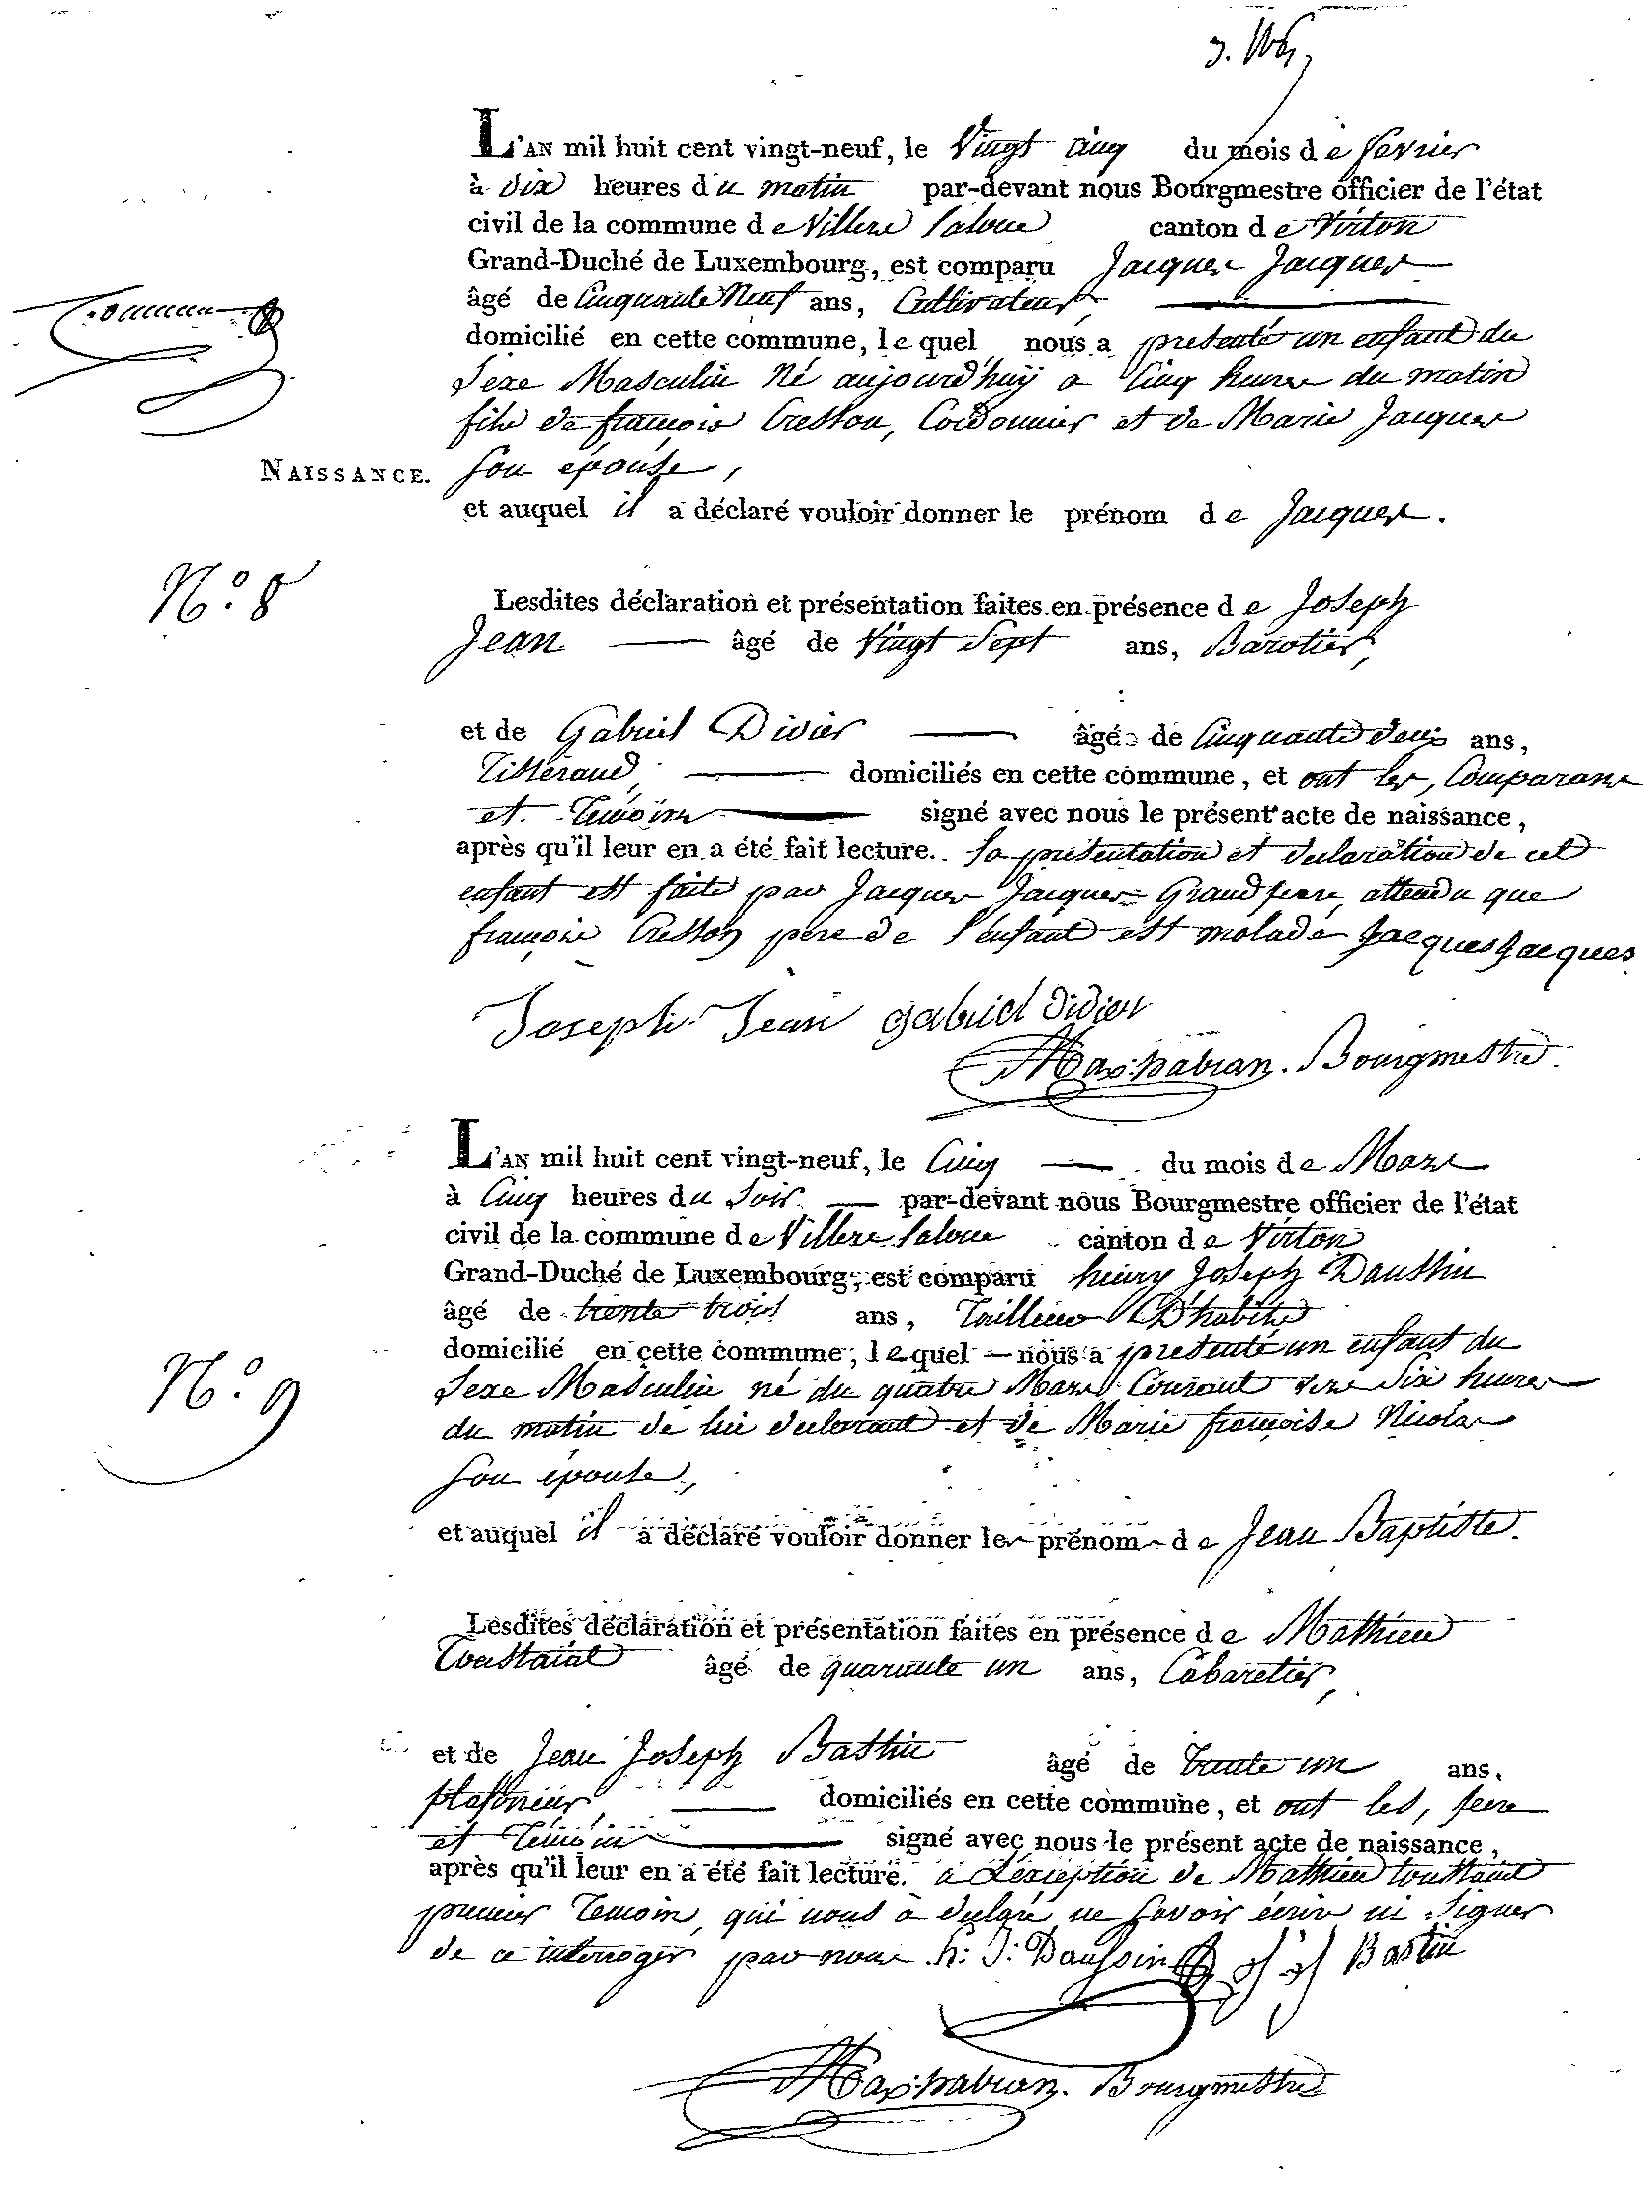 L'AN mil huit cent vingt-neuf, le Vingt Cinq du mois de fevrier
à dix heures du matin par-devant nous Bourgmestre officier de l'état
civil de la commune de Villers Laloue canton de Virton
Grand-Duché de Luxembourg, est comparu Jacques Jacques
âgé de Cinquante Neuf ans, Cultivateur,
domicilié en cette commune, lequel nous a presenté un enfant du
Sexe Masculin Né aujourd'huy a Cinq heures du matin
fils de françois Cresson, Cordonnier et de Marie Jacques
NAISSANCE. Son épouse,
et auquel il a déclaré vouloir donner le prénom de Jacques.
N.o 8
Lesdites déclaration et présentation faites en présence de Joseph
Jean âgé de Vingt Sept ans, Barotier,
et de Gabriel Didier âgé de Cinquante deux ans,
Tisserand, domiciliés en cette commune, et ont les, Comparans
et Temoins signé avec nous le présent acte de naissance,
après qu'il leur en a été fait lecture. la presentation et declaration de cet
enfant est faite par Jacques Jacques Grand pere, attendu que
françois Cresson pere de l'enfant est malade Jacques Jacques
Joseph Jean gabriel didier
Bourgmestre
L'AN mil huit cent vingt-neuf, le Cinq du mois de Mars
à Cinq heures du Soir par-devant nous Bourgmestre officier de l'état
civil de la commune de Villers Laloue canton de Virton
Grand-Duché de Luxembourg, est comparu henry Joseph Daussin
âgé de trente trois ans, Tailleur D'habits
domicilié en cette commune, lequel nous a presenté un enfant du
N.o 9
Sexe Masculin né du quatre Mars Courant vers Six heures
du matin de lui declarant et de Marie françoise Nicolas
Son épouse,
et auquel il a déclaré vouloir donner les prénoms de Jean Baptiste.
Lesdites déclaration et présentation faites en présence de Mathieu
Toustaint âgé de quarante un ans, Cabaretier,
et de Jean Joseph Bastin âgé de trente un ans,
plafonieur, domiciliés en cette commune, et ont les, pere
et Temoin signé avec nous le présent acte de naissance,
après qu'il leur en a été fait lecture. a L'exception de Mathieu toustaint
premier Temoin, qui nous à declaré ne savoir écrire ni Signer
de ce interroger par nous h: J: Daussin J J Bastin
Bourgmestre